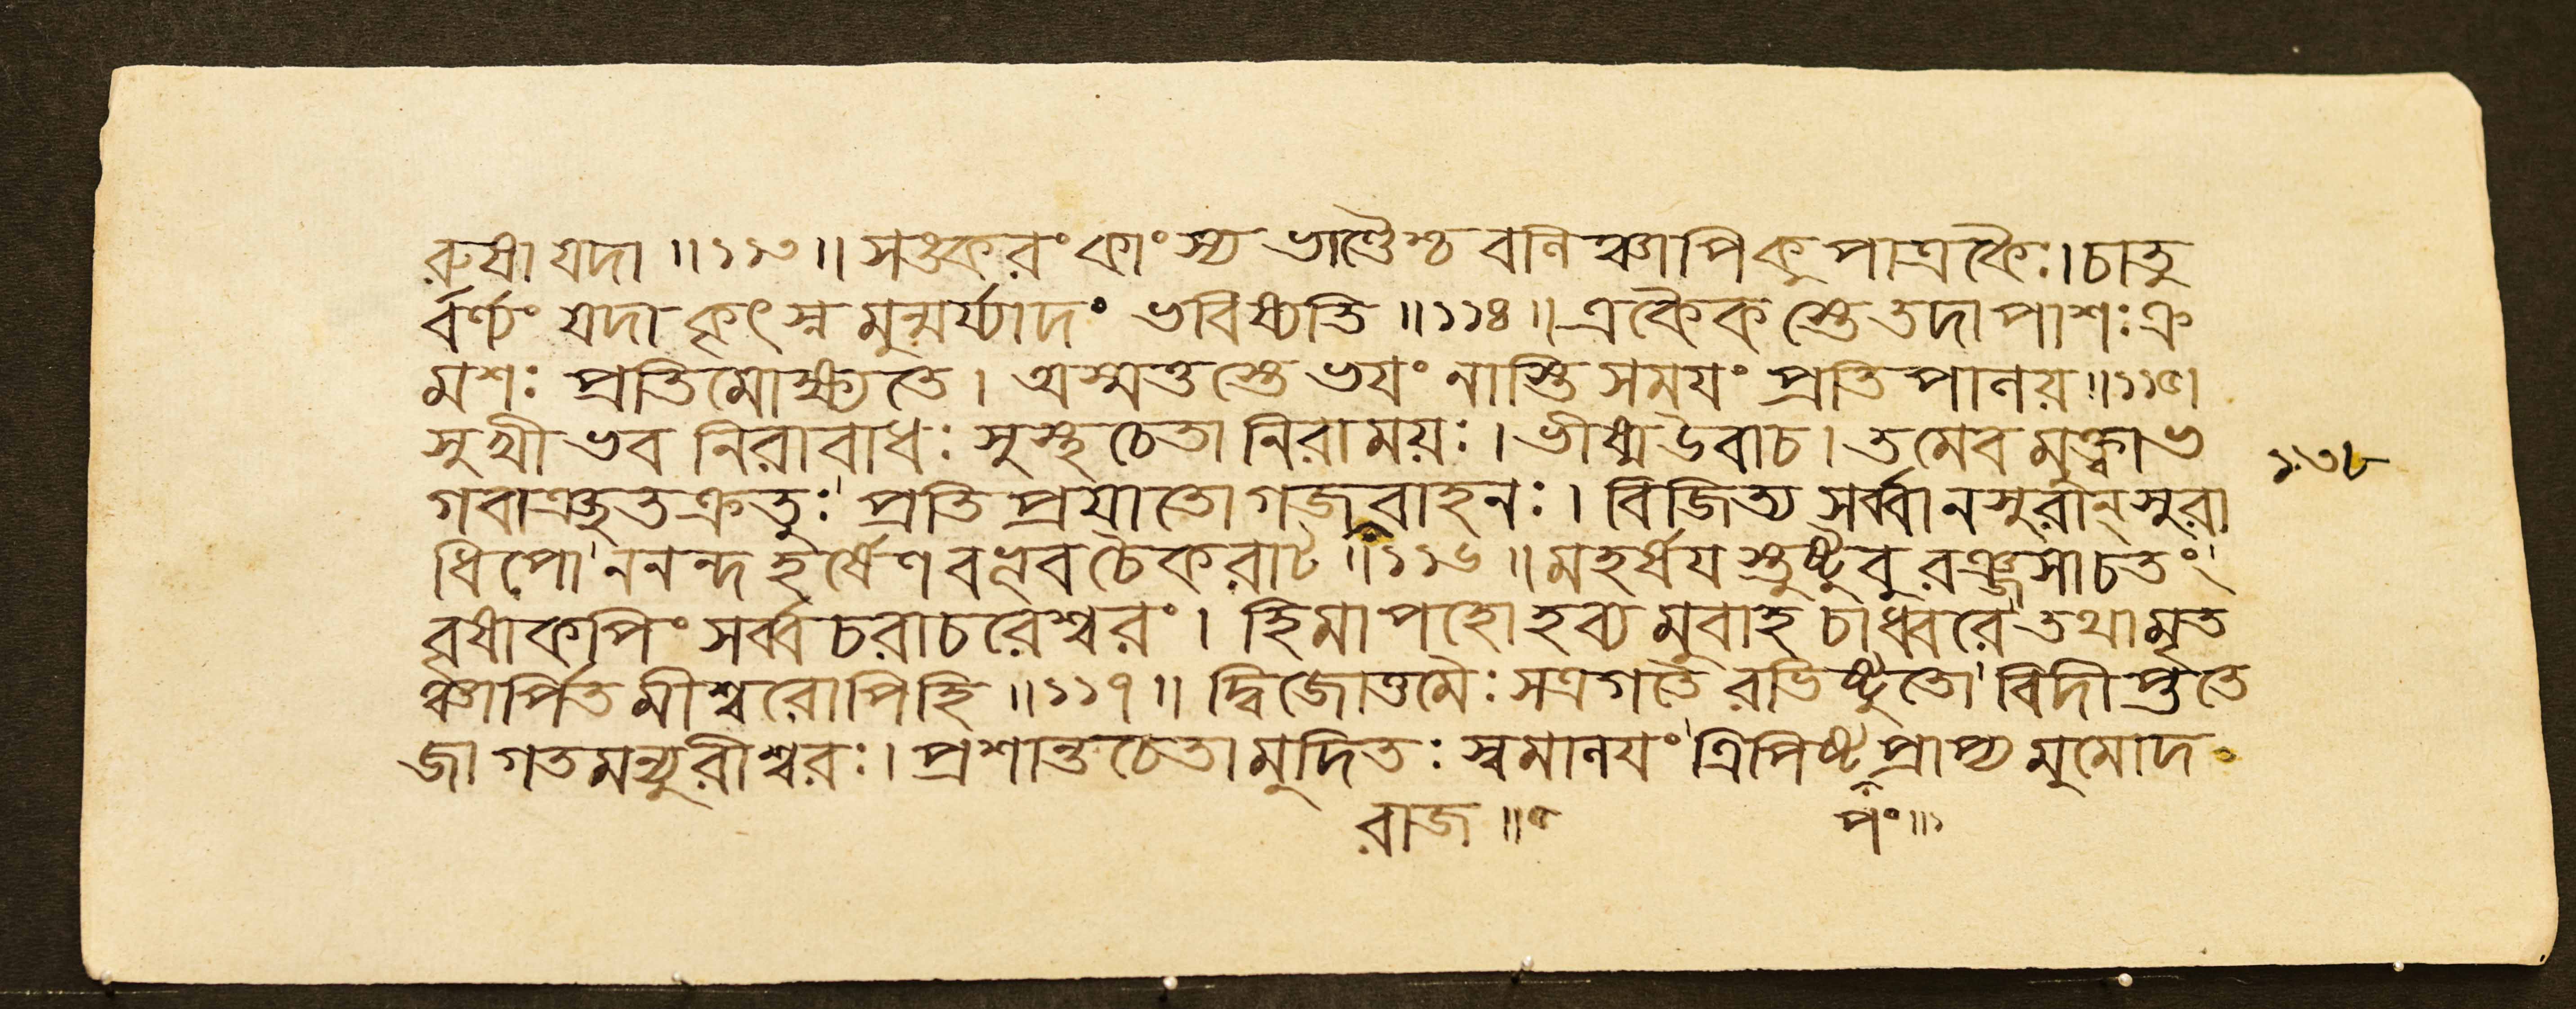 রুষা যদা ॥ ১১৩ ॥ সঙ্করং কাংস্য ভাণ্ডৈশ্চ বলিঞ্চাপি কুপাত্রকৈঃ । চাতু
র্বর্ণ্যং যদা কৃৎস্নমুন্মর্য্যাদং ভবিষ্যতি ॥ ১১৪ ॥ একৈকস্তে তদা পাশঃ ক্র
মশঃ প্রতিমোক্ষ্যতে । অস্মত্তস্তে ভযং নাস্তি সময়ং প্রতিপালয় ॥ ১১৫।
সুখী ভব নিরাবাধঃ সুস্থচেতা নিরাময়ঃ । ভীষ্ম উবাচ । তমেবমুক্ত্বা ভ
গবাঞ্ছতক্রতুঃ প্রতিপ্রযাতো গজবাহনঃ । বিজিত্য সর্ব্বানসুরান্ সুরা
ধিপো ননন্দ হর্ষেণ বভূব চৈকরাট্ ॥ ১১৬ ॥ মহর্ষযস্তুষ্টুবুরঞ্জসা চ তং
বৃষাকপিং সর্ব্বচরাচরেশ্বরং । হিমাপহো হব্যমুবাহ চাধ্বরে তথামৃত
ঞ্চার্পিতমীশ্বরোপি হি ॥ ১১৭ ॥ দ্বিজোত্তমৈঃ সর্ব্বগতৈরভিষ্টুতো বিদীপ্ততে
জা গতমন্যুরীশ্বরঃ । প্রশান্তচেতা মুদিতঃ স্বমালযং ত্রিপিষ্ট প্রাপ্য মুমোদ
রাজ ॥
পং ॥ ১
১৩৮